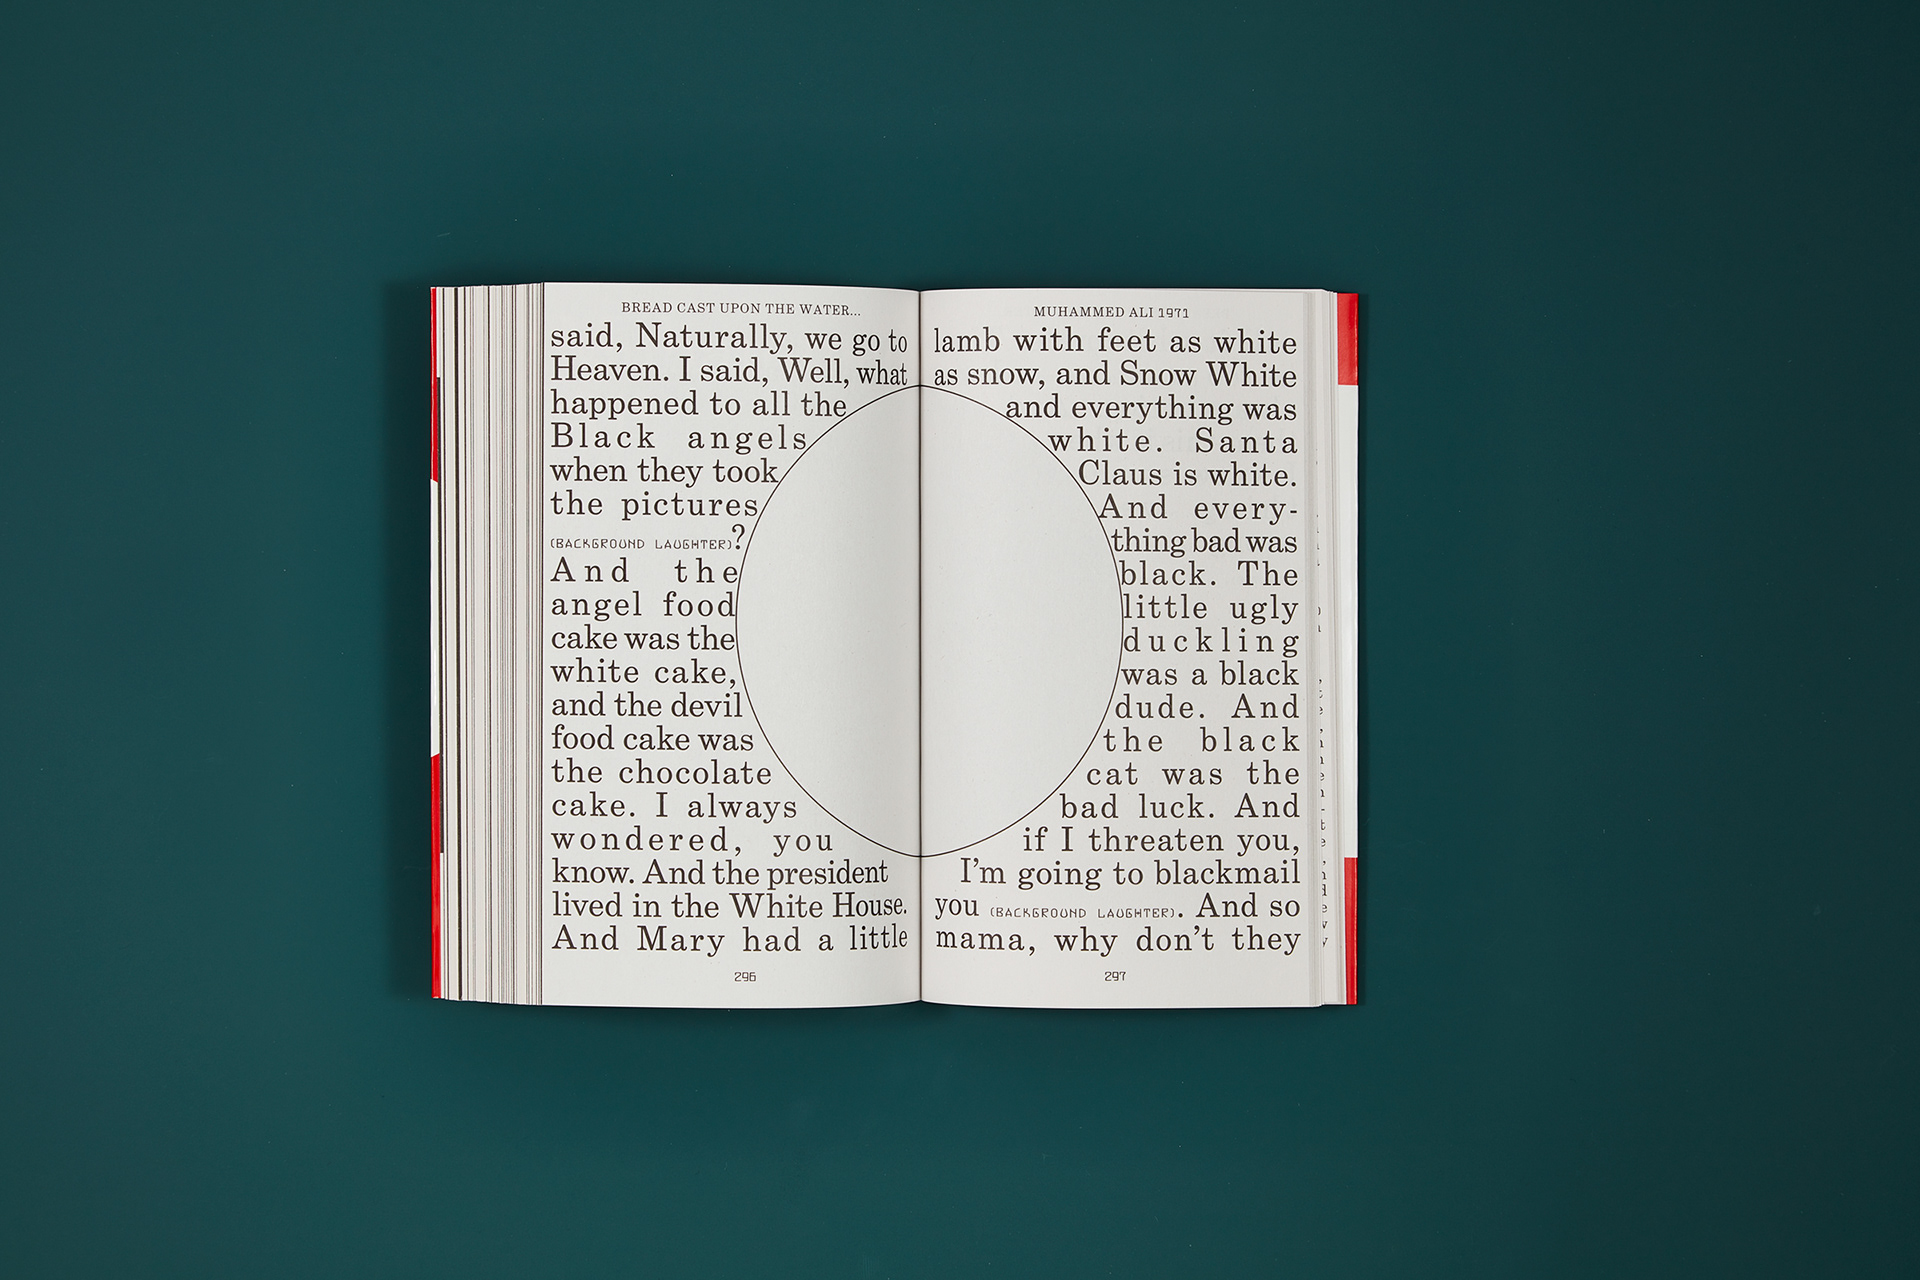 BREAD CAST UPON THE WATER...
said, Naturally, we go to
Heaven. I said, Well, what
happened to all the
Black angels
when they took
the pictures
(BACKGROUND LAUGHTER)?
And the
angel food
cake was the
white cake,
and the devil
food cake was
the chocolate
cake. I always
wondered, you
know. And the president
lived in the White House.
And Mary had a little
296
MUHAMMED ALI 1971
lamb with feet as white
as snow, and Snow White
and everything was
white. Santa
Claus is white.
And every-
thing bad was
black. The
little ugly
duckling
was a black
dude. And
the black
cat was the
bad luck. And
if I threaten you,
I'm going to blackmail
you (BACKGROUND LAUGHTER). And so
mama, why don't they
297